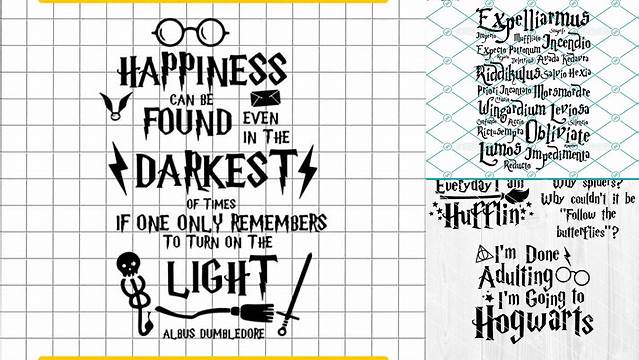 HAPPINESS
CAN BE
FOUND EVEN
IN THE
DARKEST
OF TIMES
IF ONE ONLY REMEMBERS
TO TURN ON THE
LIGHT
ALBUS DUMBLEDORE
Expelliarmus
Imperio Muffliato Incendio
Expecto Patronum
Avada Kedavra
Riddikulus Salvio Hexia
Priori Incantato Morsmordre
Wingardium Leviosa
Accio Silencio
Rictusempra Obliviate
Lumos Impedimenta
Reducto
Everyday I am
Hufflin'
Why spiders?
Why couldn't it be
"Follow the
butterflies"?
I'm Done
Adulting
I'm Going to
Hogwarts